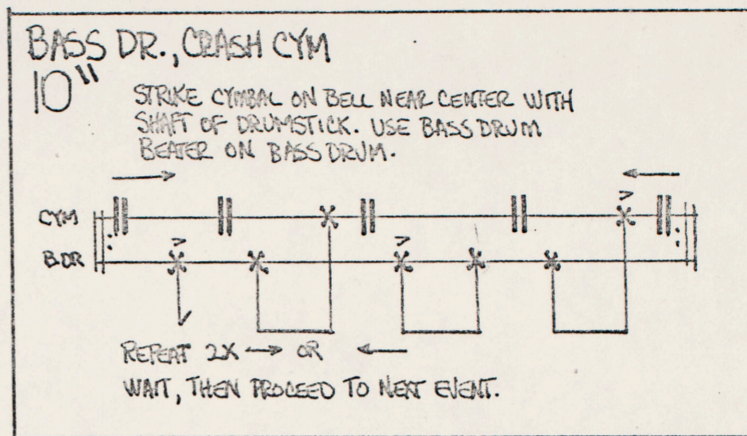 BASS DR., CRASH CYM
10"
STRIKE CYMBAL ON BELL NEAR CENTER WITH
SHAFT OF DRUMSTICK. USE BASS DRUM
BEATER ON BASS DRUM.
CYM
B.DR
REPEAT 2X → OR ←
WAIT, THEN PROCEED TO NEXT EVENT.